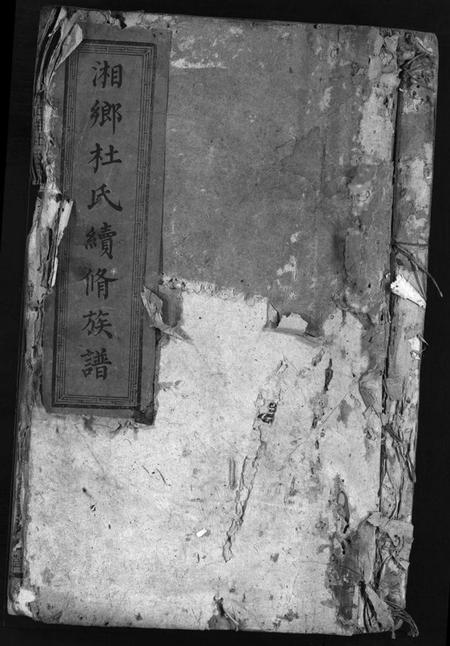 湘鄉杜氏續脩族譜